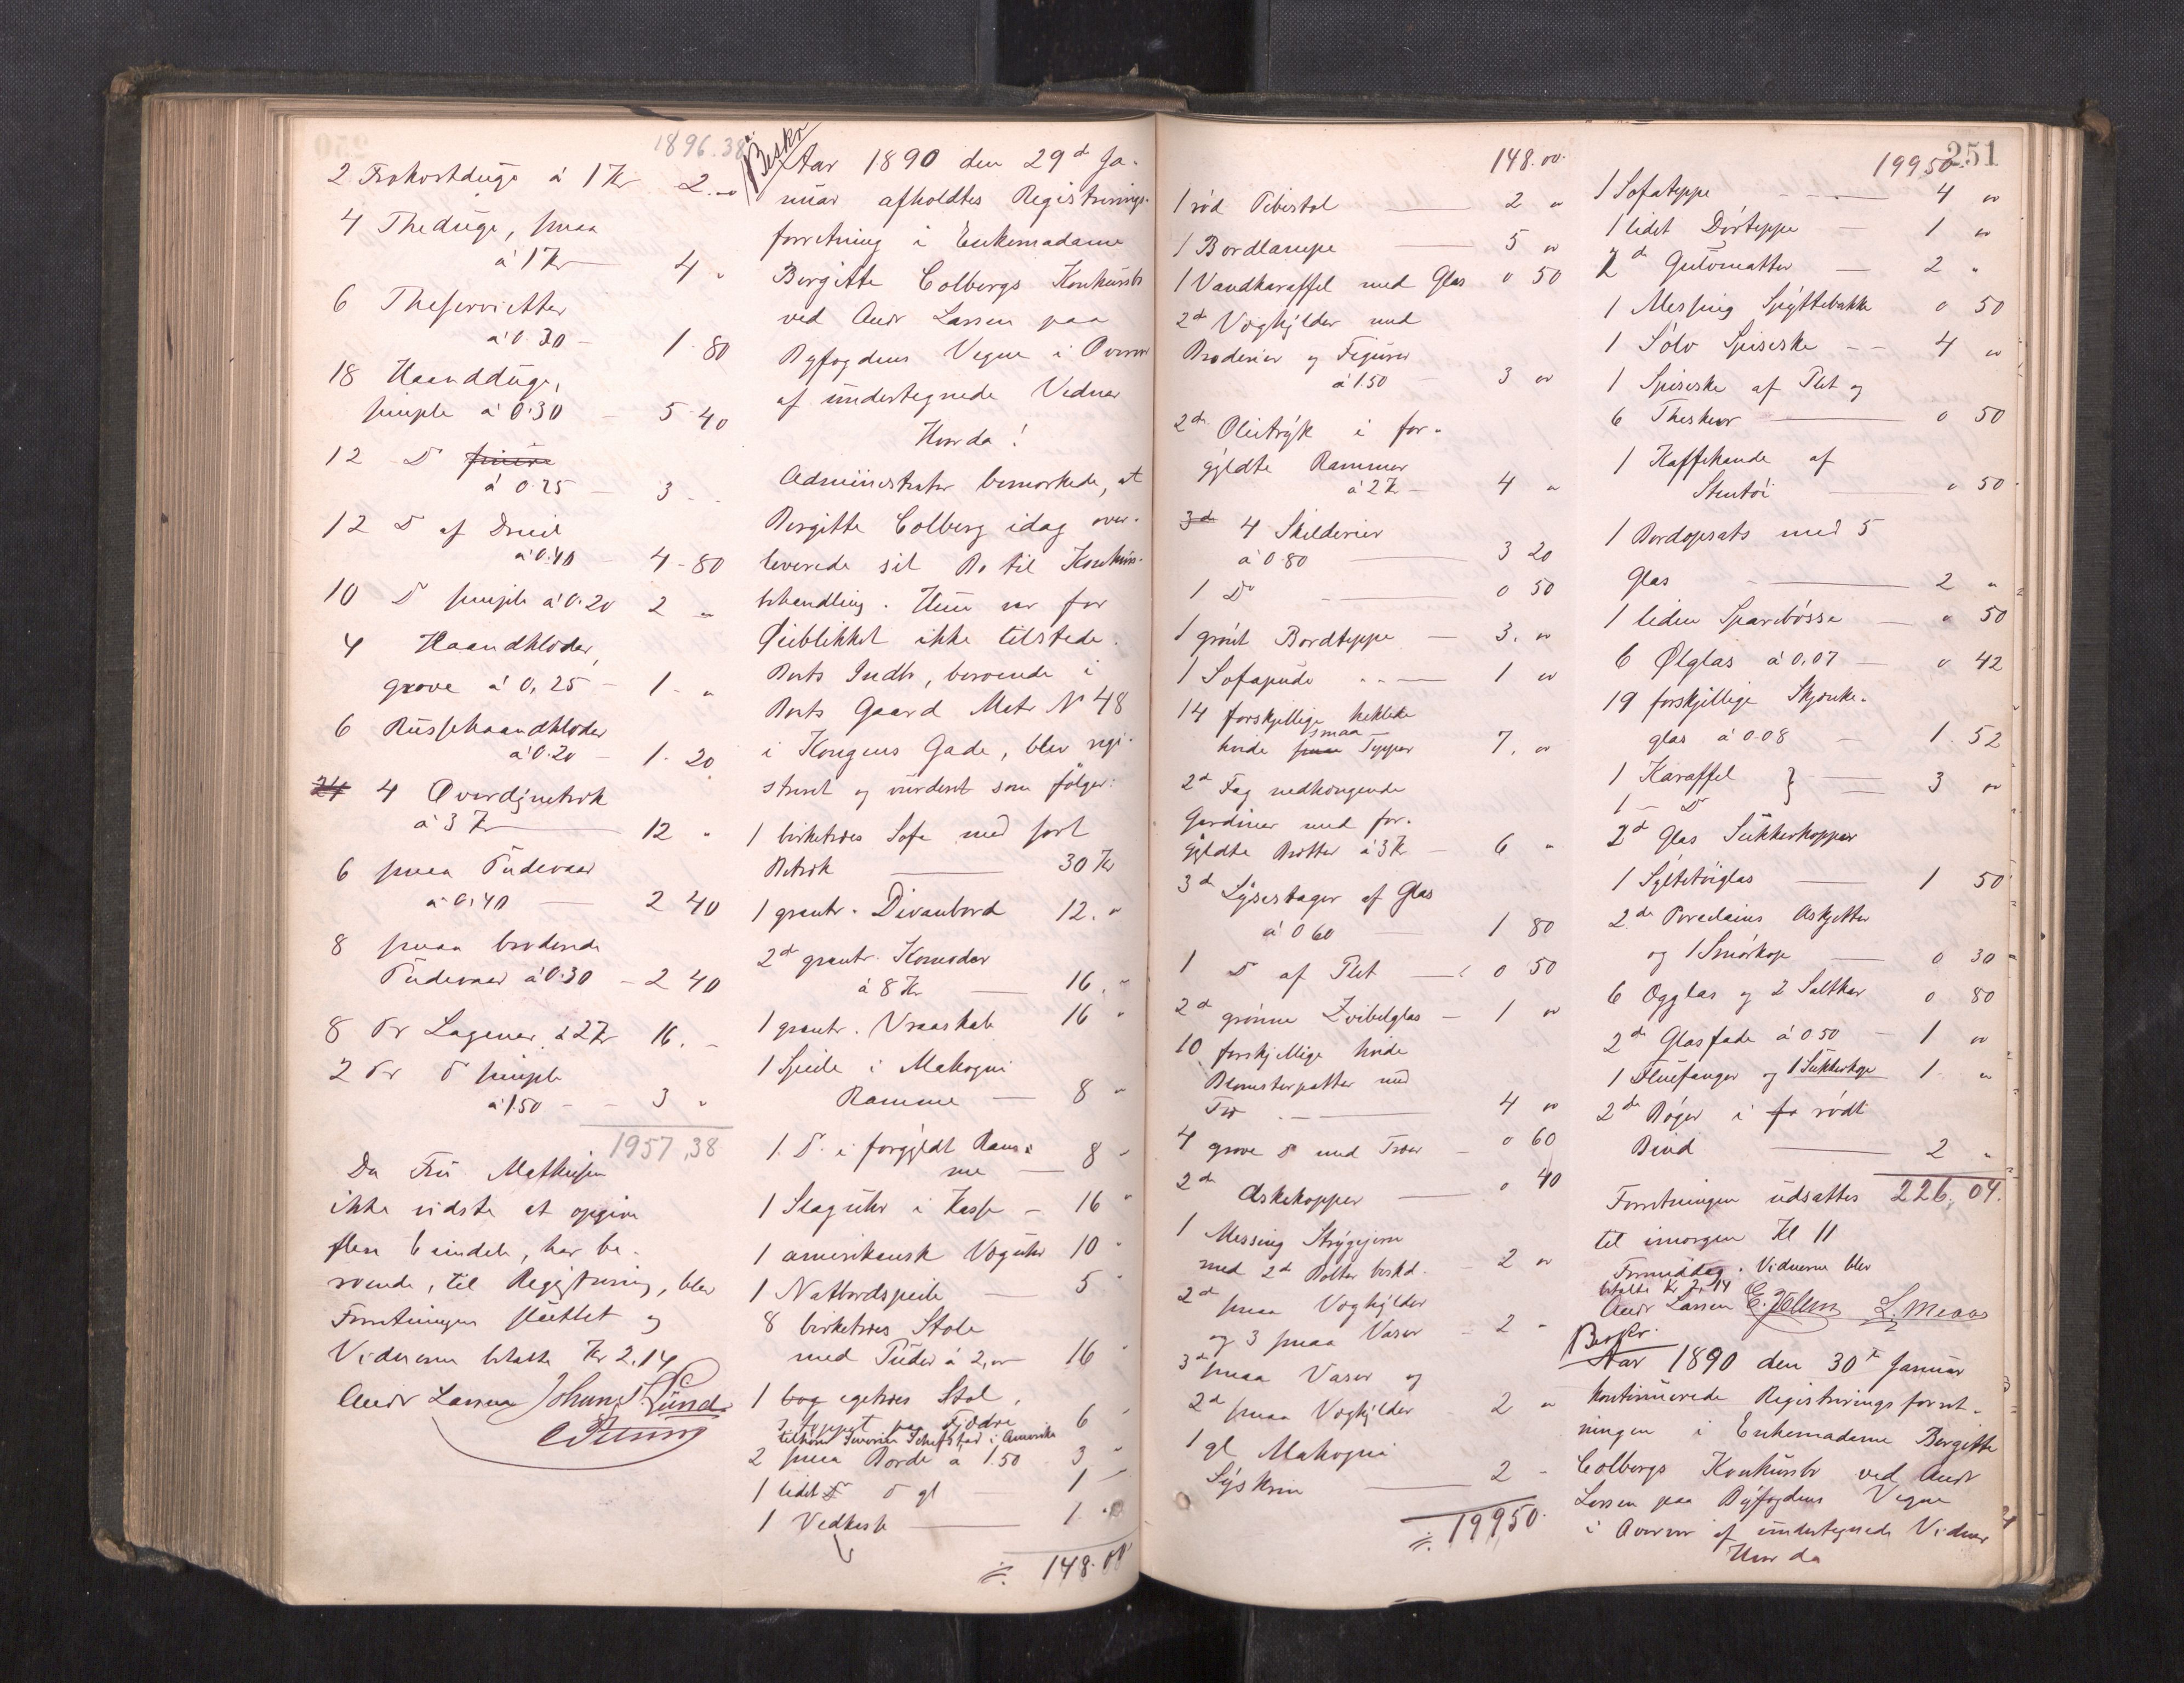 1896.38
2 Frokostduge á 1 Kr 2. "
4 Theduge, smaa
á 1 Kr 4 "
6 Theservietter
á 0.30 - 1.80
18 Haandduge,
simple á 0.30 - 5.40
12 D
á 0.25 - 3 -
12 D af Dreiel
á 0.40 - 4-80
10 D simple á 0.20 2 "
4 Haandklæder,
grove á 0,25 - 1 - "
6 Russehaandklæder
á 0.20 - 1.20
4 Overdynetræk
á 3 Kr 12 "
6 smaa Pudevaar
á 0,40 — 2 40
8 smaa broderede
Pudevaar á 0.30 - 2 40
8 Pr Lagener á 2 Kr 16. -
2 Pr D simple
á 1.50 - - 3 "
1957,38
Da Fru Mathiesen
ikke vidste at opgive
flere Eiendele, her be-
roende, til Registrering, blev
Forretningen sluttet og
Vidnerne betalte Kr 2.14
Andr Larsen Johan Lund
Beskr
Aar 1890 den 29d Ja-
nuar afholdtes Registrerings-
forretning i Enkemadame
Bergitte Colbergs Konkursbo
ved Andr Larsen paa
Byfogdens Vegne i Overvær
af undertegnede Vidner
Hvorda!
Administrator bemærkede, at
Bergitte Colberg idag over-
leverede sit Bo til Konkurs-
behandling. Hun var for
Øieblikket ikke tilstede.
Boets Indb, beroende i
Boets Gaard Matr No 48
i Kongens Gade, blev regi-
streret og vurderet som følger:
1 birketræes Sofa med sort
Betræk — 30 Kr
1 grantr. Divanbord 12. "
2d grantr. Komoder
á 8 Kr — 16. "
1 grantr. Vraaskab 16 "
1 Speile i Mahogni
Ramme — 8 "
1 D. i forgyldt Ram-
me — 8 "
1 Slaguhr i Kasse - 16 "
1 amerikansk Væguhr 10 "
1 Natbordspeile — 5 "
8 birketræes Stole
med Puder á 2,00 16 "
1 egetræes Stol,
stoppet paa Fjædre 6 "
2 smaa Borde á 1.50 3 "
1 lidet D gl — 1 "
1 Vedkasse — 1. "
148.00
148.00
1 rød Pibestol — 2 "
1 Bordlampe — 5 "
1 Vandkaraffel med Glas 0 50
2d Væghylder med
Broderier og Figurer
á 1.50 - 3 "
2d Olietryk i for-
gyldte Rammer
á 2 Kr - 4 "
3d 4 Skilderier
á 0 80 — 3 20
1 Do — 0 50
1 grønt Bordteppe — 3. "
1 Sofapude — 1 "
14 forskjellige heklede
hvide smaa Tepper 7. "
2d Fag nedhængende
Gardiner med for-
gyldte Bretter á 3 Kr - 6 "
3d Lysestager af Glas
á 0 60 — 1 80
1 D af Plet — 0 50
2d grønne Zvibelglas - 1 "
10 forskjellige hvide
Blomsterpotter med
Træ — 4 "
4 grove D med Træer - 0 60
2d Askekopper — " 40
1 Messing Strygejern
med 2d Bolter beskd. - 2 "
2d smaa Væghylder
og 3 smaa Vaser - 2 "
3d smaa Vaser og
2d smaa Væghylder - 2 "
1 gl Mahogni
Syskrin — 2 -
199,50.
251
199 50
1 Sofateppe — 4 "
1 lidet Dørteppe — 1 "
2d Gulvmatter — 2 "
1 Messing Spyttebakke 0 50
1 Sølv Spiseske - - 4 "
1 Spiseske af Plet og
6 Theskeer — 0 50
1 Kaffekande af
Stentøi — " 50
1 Bordopsats med 5
Glas — 2 "
1 liden Sparebøsse — " 50
6 Ølglas á 0,07 — 0 42
19 forskjellige Skjænke-
glas á 0.08 - 1. 52
1 Karaffel } — 3 "
1 — D
2d Glas Sukkerkopper
1 Syltetøiglas — 1 50
2de Porcelains Askjetter
og 1 Smørkop — 0 30
6 Egglas og 2 Saltkar 0 80
2d Glasfade á 0 50 - 1 "
1 Fluefanger og 1 Sukkerkop 1 "
2de Bøger i rødt
Bind — 2 "
226,04.
Forretningen udsattes
til imorgen Kl 11
Formiddag. Vidnerne blev
betalte Kr 2,14
Andr Larsen E. Holm L. Meaas
Beskr.
Aar 1890 den 30te Januar
kontinuerede Registreringsforret-
ningen i Enkemadame Bergitte
Colbergs Konkursbo ved Andr
Larsen paa Byfogdens Vegne
i Overvær af undertegnede Vidner
Hvor da